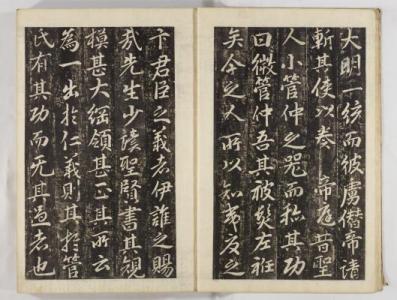 大明一統而彼虜僭帝請
斬其使以奏 帝庭昔聖
人小管仲之器而稱其功
曰微管仲吾其被髮左衽
矣今之人所以知華夏之
分君臣之義者伊誰之賜
哉先生少讀聖賢書其規
模甚大綱領甚正其所云
為一出於仁義則其於管
氏有其功而无其過者也